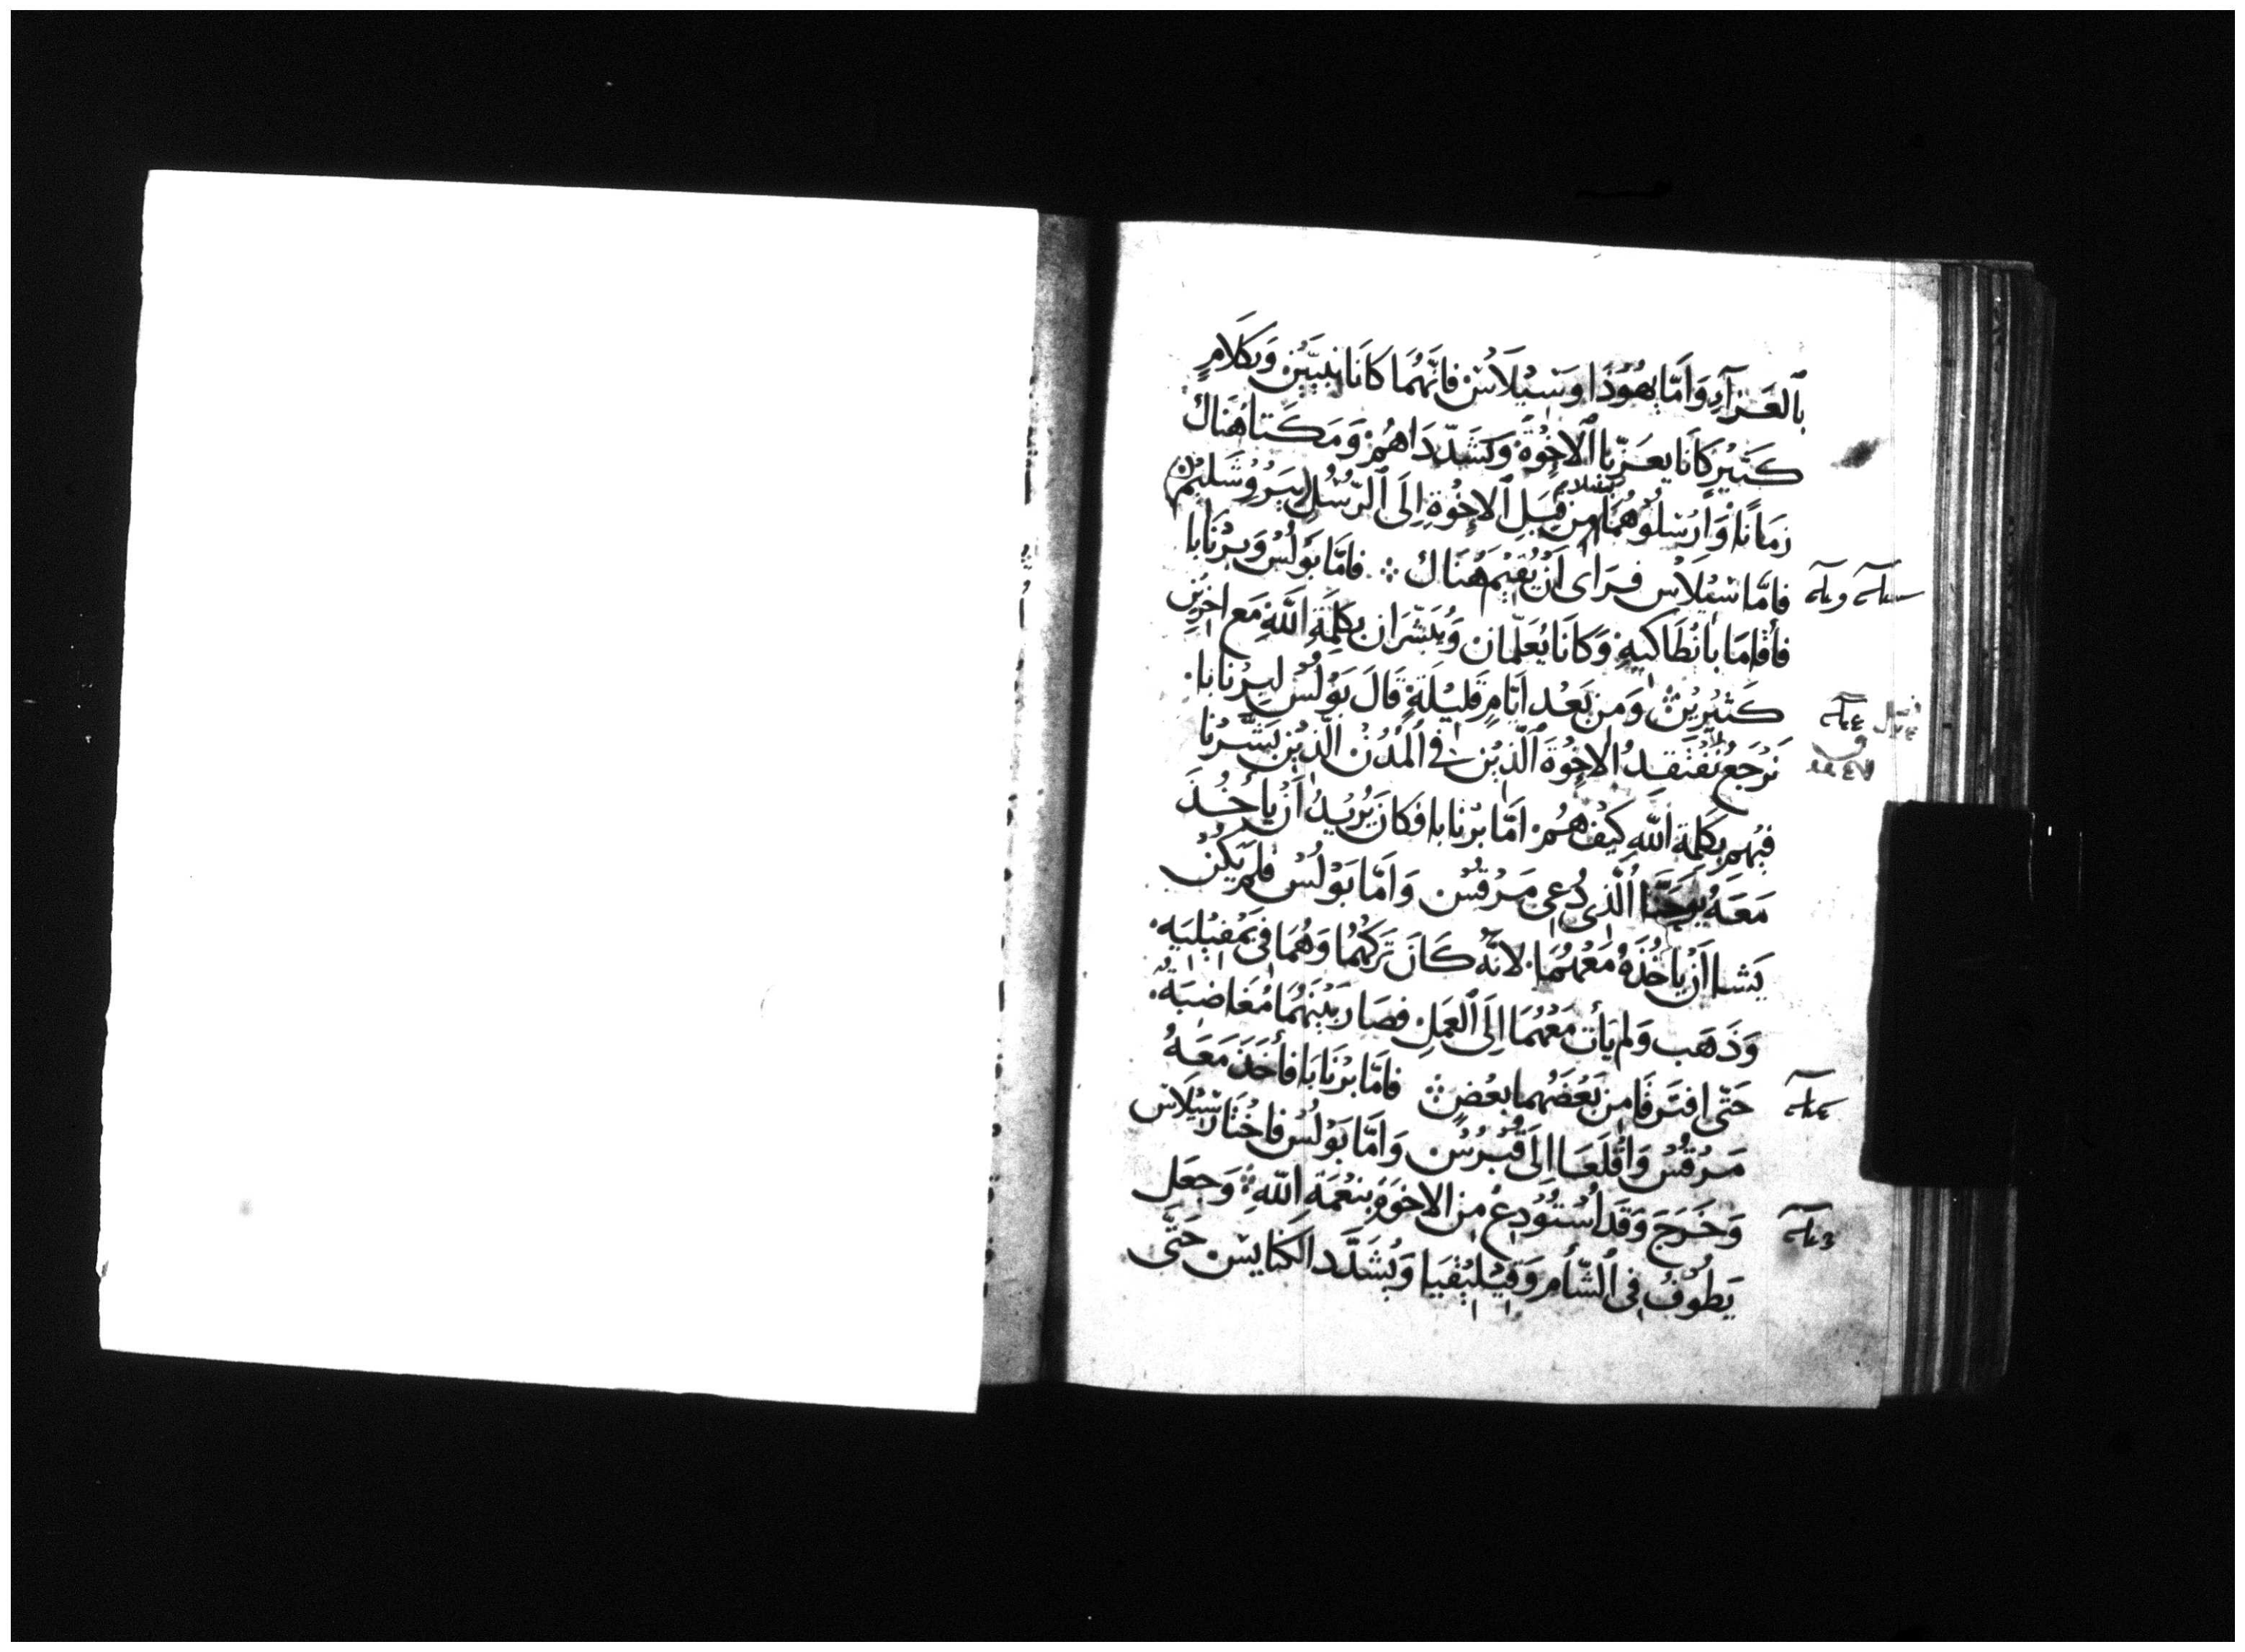 بِٱلعَزَآءِ وَاَمَّا يهُوُذَا وَسَيْلَاسُ فَانَّهُمَا كَانَا نَبيَّيْنِ وَبكَلَامٍ
كَثيْر كَانَا يعَزّيَا ٱلاخْوَةَ وَكَشَدّدَاهُمْ وَمَكَثا هُنَاكَ
زمَانًا وَارْسَلُوْهُمَا بسَلام مِنْ قِبَلِ ٱلاِخْوَةِ اِلَى ٱلرّسُلِ بيَرُوْشَلِيْمَ
فاَمَّا سْيْلَاسُ فرَاى اَنْ يُقيْمَ هُنَاك ܀ فَامَّا بَوْلُسُ وَبرْنَابَا
فاَقامَا بأنْطَاكيَهِ وَكَانَا يُعَلّمَان وَيُبَشّرَان بكَلِمَةِ اَللَّهِ مَع اخرِيْنِ
كَثيْرِيْنَ وَمنْ بَعْد اَيَّامٍ قَلِيْلَةٍ قَالَ بَوْلُسُ لبِرْنَابَا
نَرْجَعُ نَفْتَقِدُ الاخْوَةَ ٱلَّذيْنَ في ٱلمُدُنْ الَّذيْن بَشَّرْنَا
فيْهِم بكَلِمَةِ اللّهِ كَيْفَ هُمْ اَمَّا برْنَابا فَكَانَ يُرِيْدُ اَنْ يأْخُذَ
مَعَهُ يُوحَنَّا الَّذي دُعِي مَرْقُسُ وَاَمَّا بَوْلُسُ فلَمْ يَكُنْ
يَشا اَنْ يأخُذَهُ مَعْهُمَا لاَنَّهُ كَانَ تَرَكَهُمَا وَهُمَا في بَمْفيْليَه
وَذَهَب وَلم يَأت مَعْهُمَا اِلَى ٱلعَمَلِ فصَار بَيْنَهُمَا مُغَاضبَة
حَتّى افتَرقَا منْ بَعْضِهُما بعْضٍ فَامَّا برْنَابَا فَاَخَذَ مَعَهُ
مَرْقُسْ وَاقْلَعَا اِلَى قُبْرُسْ وَاَمَّا بَوْلُس فاخْتَار سْيْلَاس
وَخَرَجَ وَقَد اُسْتُوْدِعَ مِن الاخْوَةِ بنعْمَةِ اللّهِ وَجعَل
يَطُوْفُ فِي ٱلشَّأم وَقيْليْقيَا وَيُشَدّد الكَنَايسَ حَتَّى